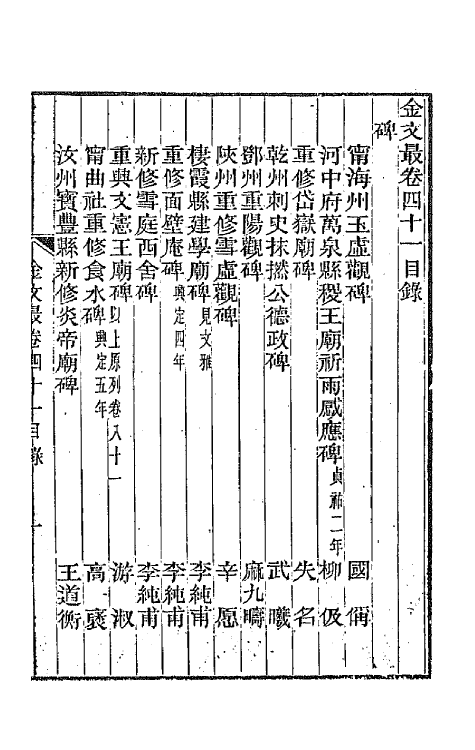 金文最卷四十一目錄
碑
甯海州玉虛觀碑 國偁
河中府萬泉縣稷王廟祈雨感應碑 貞祐二年 柳伋
重修岱嶽廟碑 失名
乾州刺史抹撚公德政碑 武曦
鄧州重陽觀碑 麻九疇
陜州重修雪虛觀碑 辛愿
棲霞縣建學廟碑 見文雅 李純甫
重修面壁庵碑 興定四年 李純甫
新修雪庭西舍碑 李純甫
重興文憲王廟碑 以上原列卷八十一 游淑
甯曲社重修食水碑 興定五年 高褒
汝州寶豐縣新修炎帝廟碑 王道衡
金文最卷四十一目錄 一